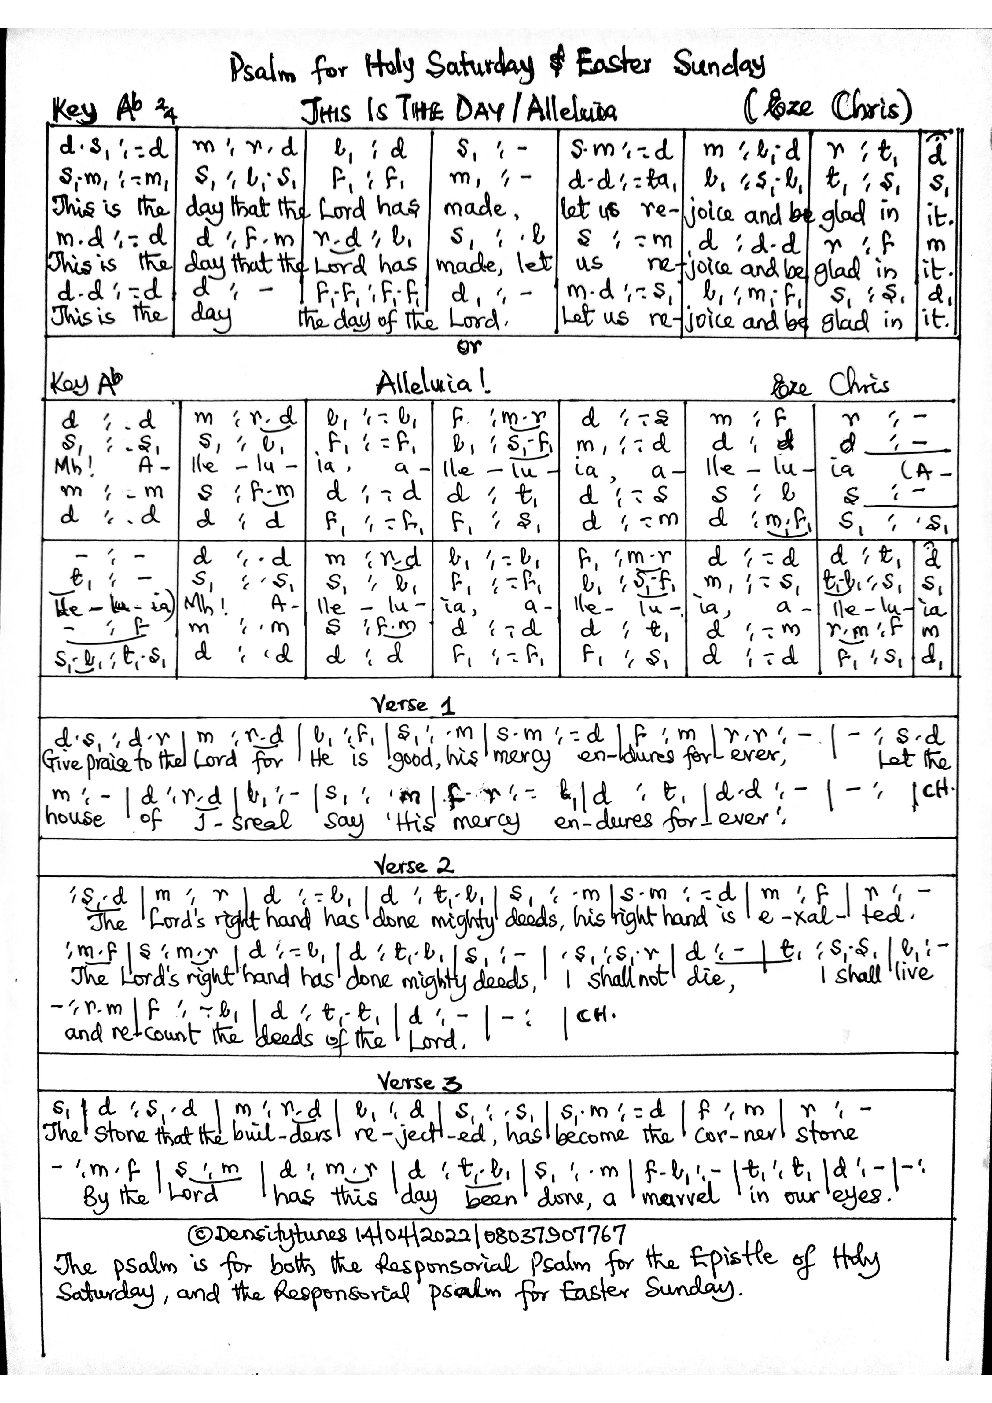 Psalm for Holy Saturday & Easter Sunday
Key Ab 2/4 THIS IS THE DAY/Alleluia (Eze Chris)
d.s₁ :-d | m : r.d | l₁ : d | s₁ : - | s.m :-d | m : l₁.d | r : t₁ | d
s₁.m₁ :-m₁ | s₁ : l₁.s₁ | f₁ : f₁ | m₁ : - | d.d :-ta₁ | l₁ : s₁.l₁ | t₁ : s₁ | s₁
This is the day that the Lord has made, let us re-joice and be glad in it.
m.d :-d | d : f.m | r.d : l₁ | s₁ : .l | s :-m | d : d.d | r : f | m
This is the day that the Lord has made, let us re-joice and be glad in it.
d.d :-d | d : - | f₁.f₁ : f₁.f₁ | d₁ : - | m.d :-s₁ | l₁ : m₁.f₁ | s₁ : s₁ | d₁
This is the day the day of the Lord. Let us re-joice and be glad in it.
or
Key Ab Alleluia! Eze Chris
d : .d | m : r.d | l₁ :-l₁ | f : m.r | d :-s | m : f | r : -
s₁ : .s₁ | s₁ : l₁ | f₁ :-f₁ | l₁ : s₁.f₁ | m₁ :-d | d : d | d : -
Mh! A- lle-lu- ia, a- lle-lu- ia, a- lle-lu- ia (A-
m : -m | s : f.m | d :-d | d : t₁ | d :-s | s : l | s : -
d : .d | d : d | f₁ :-f₁ | f₁ : s₁ | d :-m | d : m₁.f₁ | s₁ : .s₁
- : - | d : .d | m : r.d | l₁ :-l₁ | f₁ : m.r | d :-d | d : t₁ | d
t₁ : - | s₁ : .s₁ | s₁ : l₁ | f₁ :-f₁ | l₁ : s₁.f₁ | m₁ :-s₁ | t₁.l₁ : s₁ | s₁
lle-lu-ia) Mh! A- lle-lu- ia, a- lle-lu- ia, a- lle-lu- ia
- : f | m : .m | s : f.m | d :-d | d : t₁ | d :-m | r.m : f | m
s₁.l₁ : t₁.s₁ | d : .d | d : d | f₁ :-f₁ | f₁ : s₁ | d :-d | f₁ : s₁ | d₁
Verse 1
d.s₁ : d.r | m : r.d | l₁ : f₁ | s₁ : .m | s.m :-d | f : m | r.r : - | - : s.d
Give praise to the Lord for He is good, his mercy en-dures for-ever, Let the
m : - | d : r.d | l₁ : - | s₁ : .m | f.r :- l₁ | d : t₁ | d.d : - | - : | CH.
house of I-sreal say 'His mercy en-dures for-ever'.
Verse 2
: s₁.d | m : r | d :-l₁ | d : t₁.l₁ | s₁ : .m | s.m :-d | m : f | r : -
The Lord's right hand has done mighty deeds, his right hand is e-xal-ted.
: m.f | s : m.r | d :-l₁ | d : t₁.l₁ | s₁ : - | .s₁ : s₁.r | d : - | t₁ : s₁.s₁ | l₁ : -
The Lord's right hand has done mighty deeds, I shall not die, I shall live
- : r.m | f :-l₁ | d : t₁.t₁ | d : - | - : | CH.
and re-count the deeds of the Lord.
Verse 3
s₁ | d : s₁.d | m : r.d | l₁ : d | s₁ : .s₁ | s₁.m :-d | f : m | r : -
The stone that the buil-ders re-ject-ed, has become the cor-ner stone
- : m.f | s : m | d : m.r | d : t₁.l₁ | s₁ : .m | f.l₁ : - | t₁ : t₁ | d : - | - :
By the Lord has this day been done, a marvel in our eyes.
©Densitytunes 14/04/2022/08037907767
The psalm is for both the Responsorial Psalm for the Epistle of Holy
Saturday, and the Responsorial psalm for Easter Sunday.